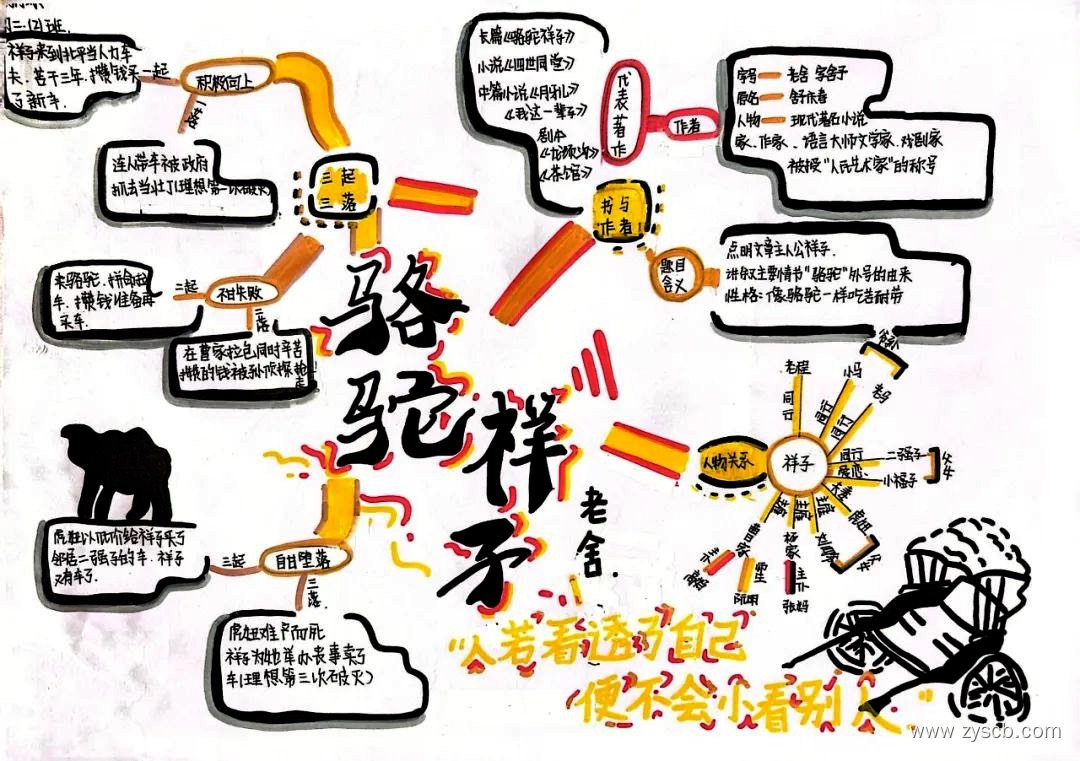 初二.(2)班.
祥子来到北平当人力车
夫.苦干三年.攒钱买
了新车.
一起
积极向上
一落
连人带车被政府
抓去当壮丁(理想第一次破灭)
三起
三落
卖骆驼.拼命拉
车.攒钱准备再
买车.
二起
不甘失败
二落
在曹家拉包同时辛苦
攒的钱被孙侦探抢
走!
虎妞以低价给祥子买了
邻居二强子的车.祥子
又有车了.
三起
自甘堕落
三落
虎妞难产而死
祥子为她举办丧事卖了
车(理想第三次破灭)
骆
驼
祥
子
老舍.
长篇《骆驼祥子》
小说《四世同堂》
中篇小说《月牙儿》
《我这一辈子》
剧本
《龙须沟》
《茶馆》
代表著作
作者
字号 — 老舍 字舍予
原名 — 舒庆春
人物 — 现代著名小说
家、作家、语言大师文学家、戏剧家
被授“人民艺术家”的称号
书与
作者
题目
含义
点明文章主人公祥子.
讲叙主要情节“骆驼”外号的由来
性格:像骆驼一样吃苦耐劳
人物关系
祥子
老程
同行
小马
同行
老马
同行
爷孙
二强子
同行
小福子
父女
虎妞
夫妻
刘四爷
父女
杨家
主仆
张妈
曹家
高妈
“人若看透了自己
便不会小看别人.”
www.zyscb.com